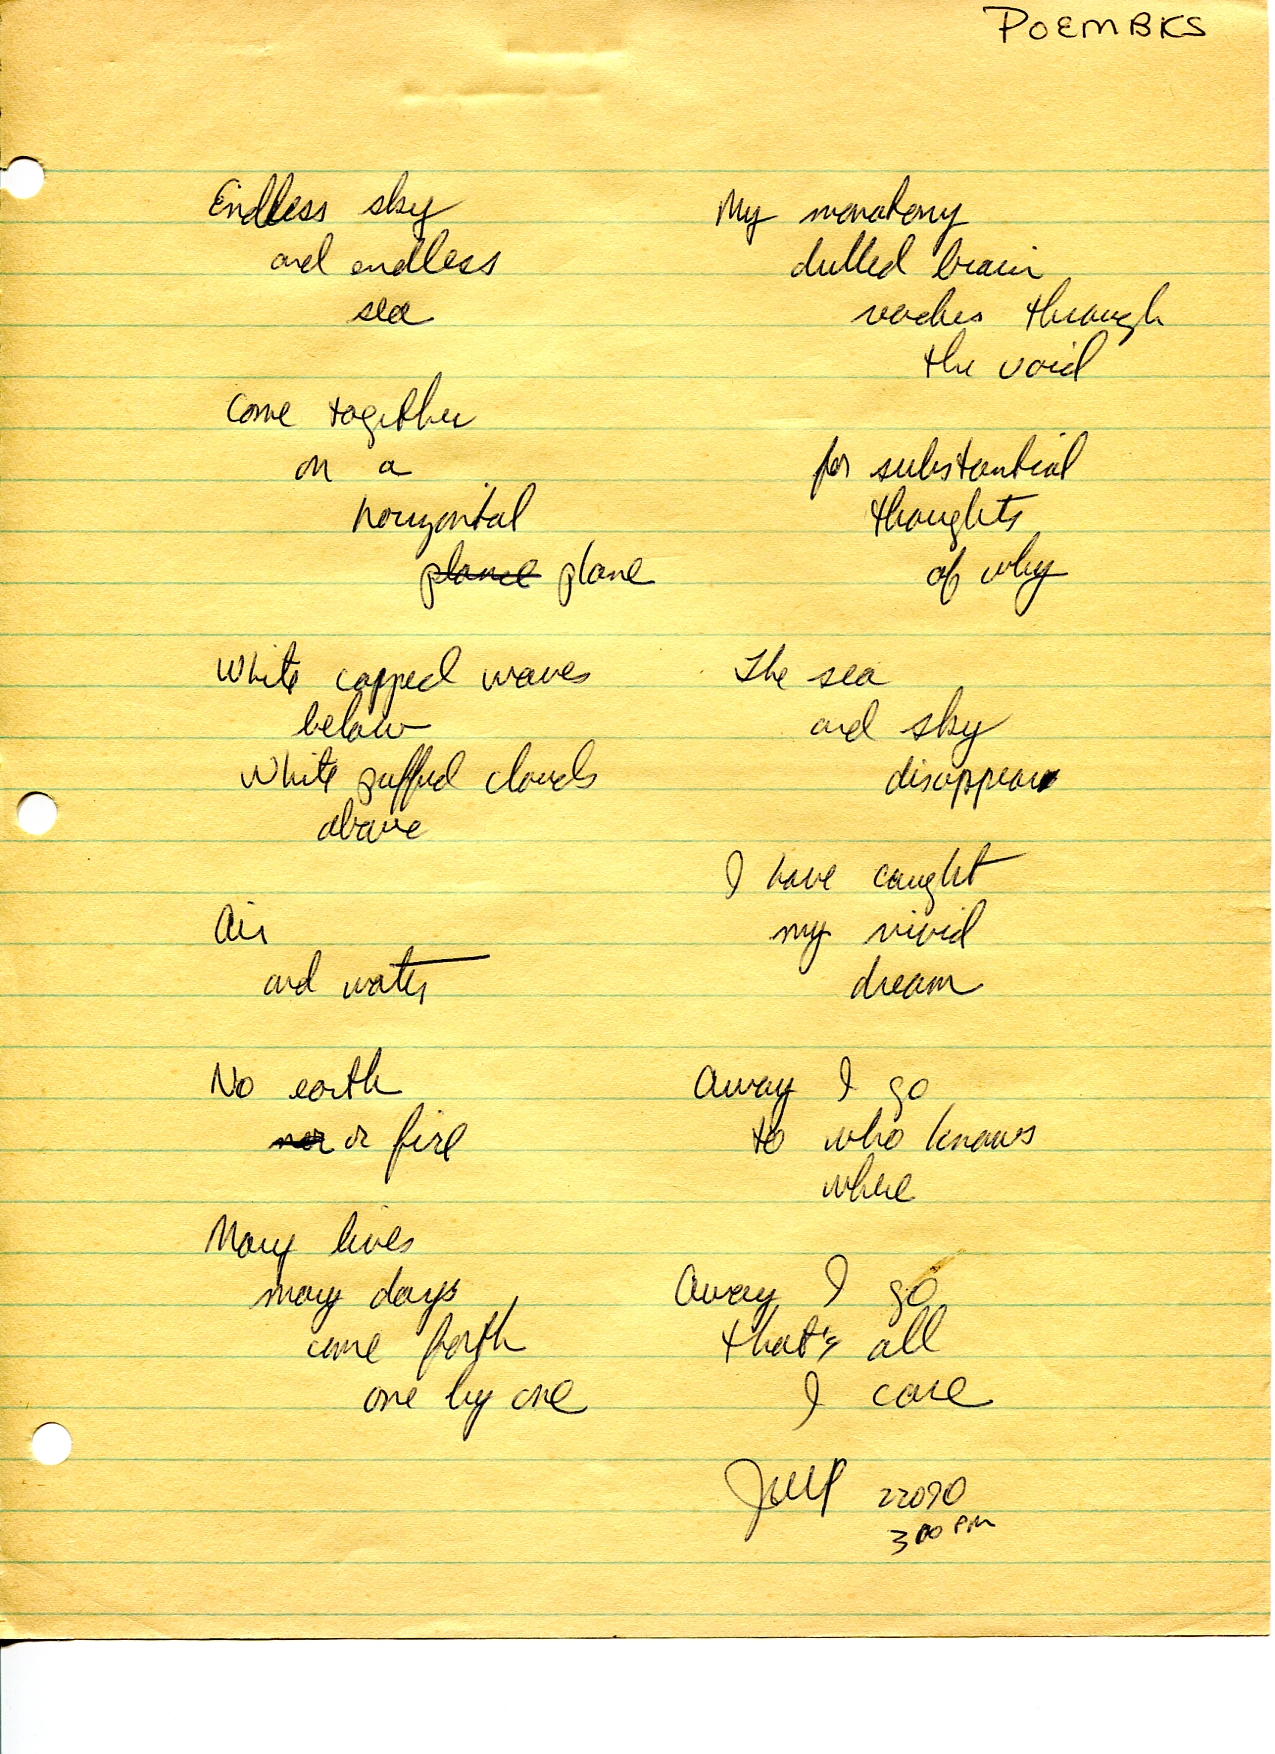 POEMBKS
Endless sky
and endless
sea
Come together
on a
horizontal
plane
White capped waves
below
White puffed clouds
above
Air
and water
No earth
or fire
Many lives
many days
come forth
one by one
My monotony
dulled brain
reaches through
the void
for substantial
thoughts
of why
The sea
and sky
disappear
I have caught
my vivid
dream
Away I go
to who knows
where
Away I go
that's all
I care
22090
3 00 PM